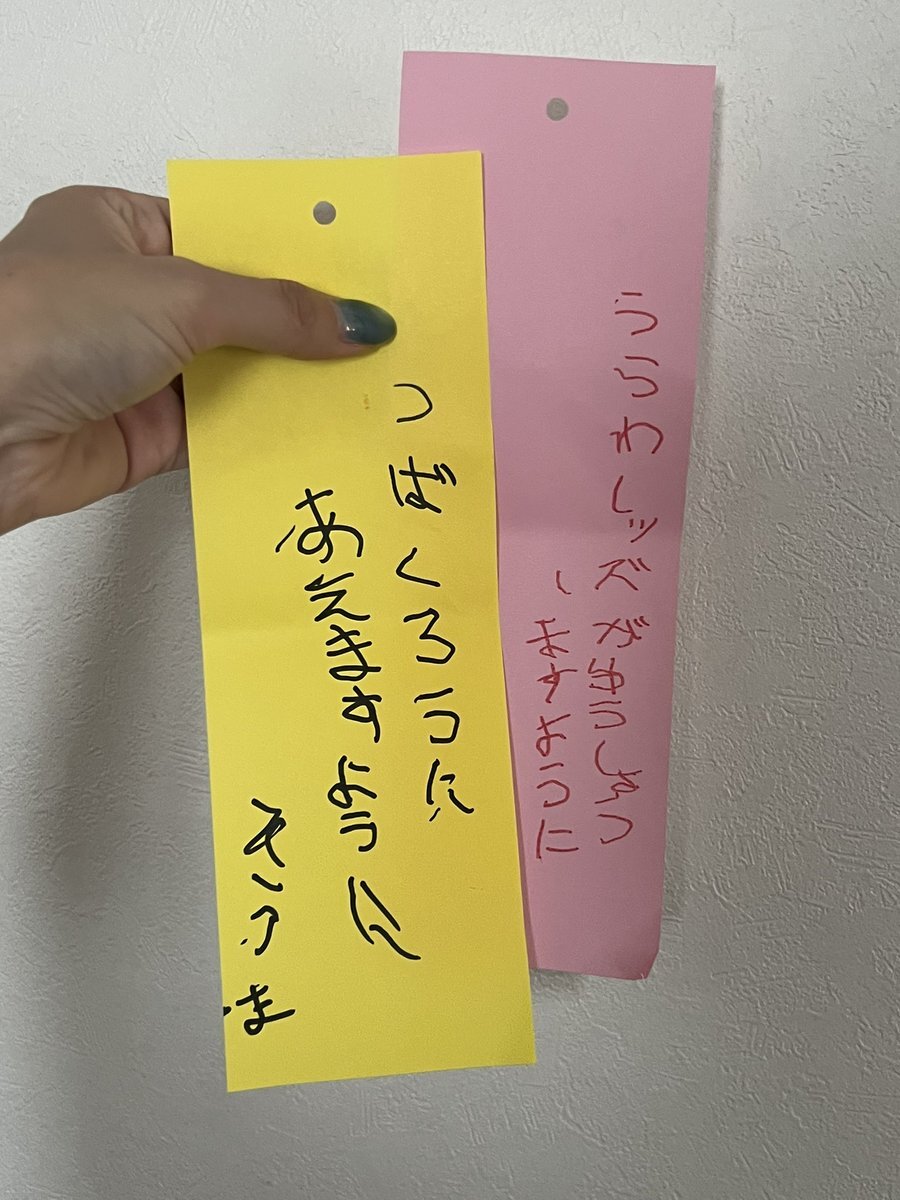 うらわレッズがゆうしょう
しますように
つばくろうに
あえますように
そうま